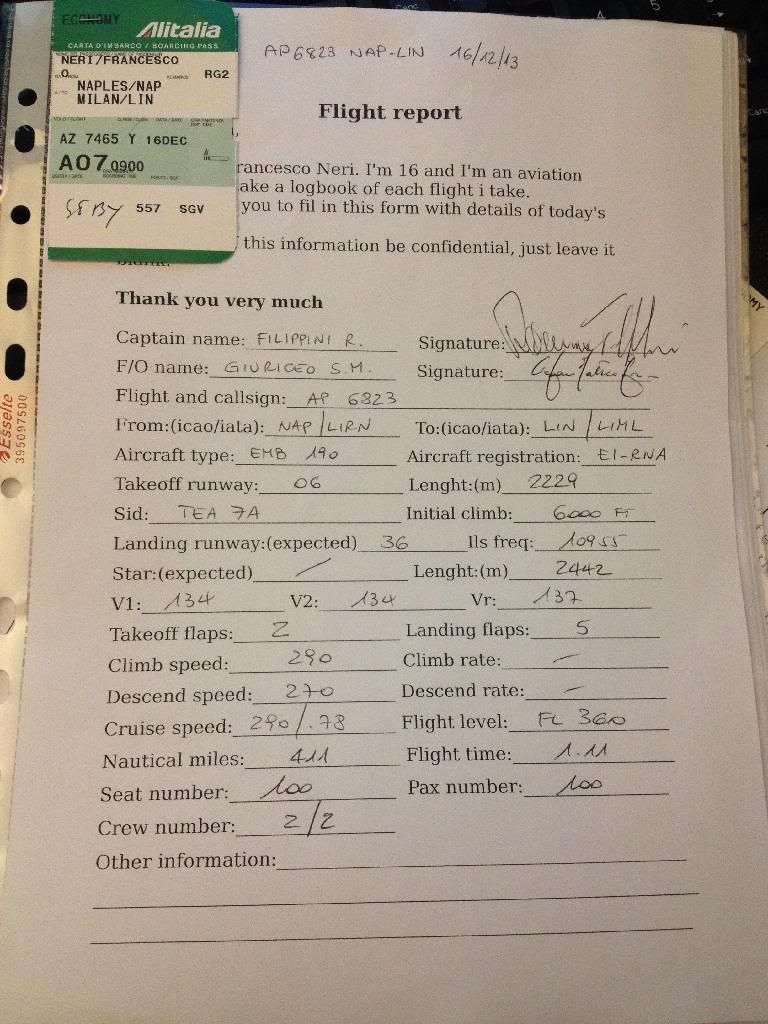 ECONOMY
Alitalia
CARTA D'IMBARCO / BOARDING PASS
NERI/FRANCESCO
RG2
NAPLES/NAP
MILAN/LIN
AZ 7465 Y 16DEC
A07 0900
557 SGV
AP6823 NAP-LIN 16/12/13
Flight report
rancesco Neri. I'm 16 and I'm an aviation
ake a logbook of each flight i take.
you to fil in this form with details of today's
this information be confidential, just leave it
blank.
Thank you very much
Captain name: FILIPPINI R. Signature:
F/O name: GIURICEO S.M. Signature:
Flight and callsign: AP 6823
From:(icao/iata): NAP/LIRN To:(icao/iata): LIN/LIML
Aircraft type: EMB 190 Aircraft registration: EI-RNA
Takeoff runway: 06 Lenght:(m) 2229
Sid: TEA 7A Initial climb: 6000 FT
Landing runway:(expected) 36 Ils freq: 10955
Star:(expected) / Lenght:(m) 2442
V1: 134 V2: 134 Vr: 137
Takeoff flaps: 2 Landing flaps: 5
Climb speed: 290 Climb rate: —
Descend speed: 270 Descend rate: —
Cruise speed: 290/.78 Flight level: FL 360
Nautical miles: 411 Flight time: 1.11
Seat number: 100 Pax number: 100
Crew number: 2/2
Other information:
Esselte
395097500